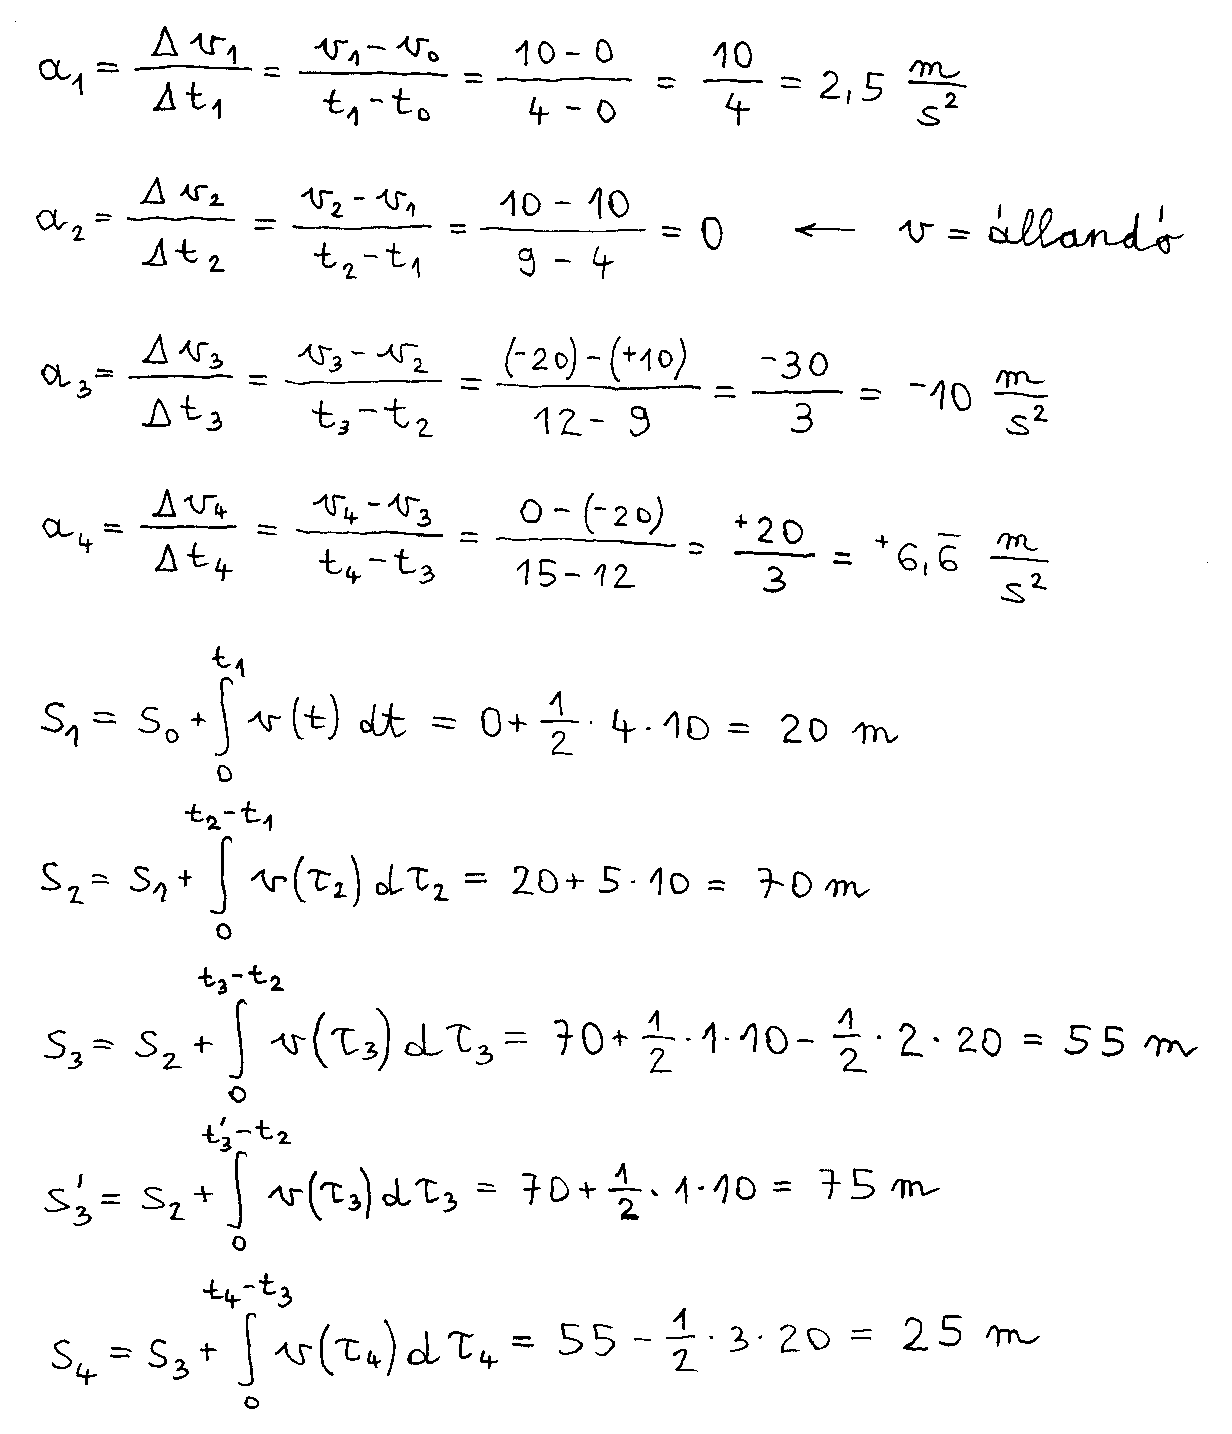 a₁ = Δv₁/Δt₁ = (v₁-v₀)/(t₁-t₀) = (10-0)/(4-0) = 10/4 = 2,5 m/s²
a₂ = Δv₂/Δt₂ = (v₂-v₁)/(t₂-t₁) = (10-10)/(9-4) = 0 ← v = állandó
a₃ = Δv₃/Δt₃ = (v₃-v₂)/(t₃-t₂) = ((-20)-(+10))/(12-9) = -30/3 = -10 m/s²
a₄ = Δv₄/Δt₄ = (v₄-v₃)/(t₄-t₃) = (0-(-20))/(15-12) = +20/3 = +6,6̅ m/s²
S₁ = S₀ + ∫₀^{t₁} v(t) dt = 0 + 1/2 · 4 · 10 = 20 m
S₂ = S₁ + ∫₀^{t₂-t₁} v(τ₂) dτ₂ = 20 + 5 · 10 = 70 m
S₃ = S₂ + ∫₀^{t₃-t₂} v(τ₃) dτ₃ = 70 + 1/2 · 1 · 10 - 1/2 · 2 · 20 = 55 m
S₃' = S₂ + ∫₀^{t₃'-t₂} v(τ₃) dτ₃ = 70 + 1/2 · 1 · 10 = 75 m
S₄ = S₃ + ∫₀^{t₄-t₃} v(τ₄) dτ₄ = 55 - 1/2 · 3 · 20 = 25 m